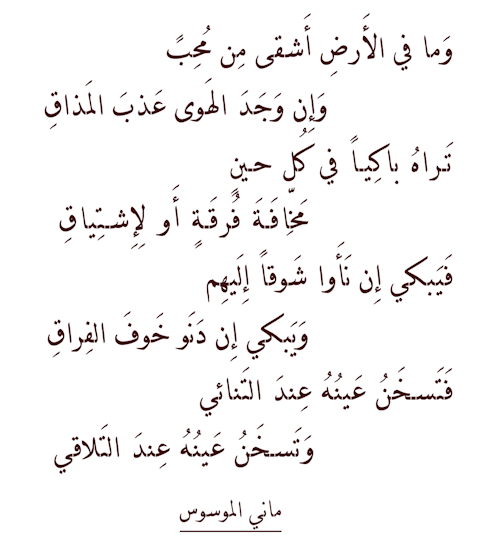 وَما في الأَرضِ أَشقى مِن مُحِبًّ
وَإِن وَجَدَ الهَوى عَذبَ المَذاقِ
تَراهُ باكِياً في كُل حينٍ
مَخِّافَةَ فُرقَةٍ أَو لِإِشتِياقِ
فَيَبكي إِن نَأَوا شَوقاً إِلَيهِم
وَيَبكي إِن دَنَو خَوفَ الفِراقِ
فَتَسخَنُ عَينُهُ عِندَ التَنائي
وَتَسخَنُ عَينُهُ عِندَ التَلاقي
ماني الموسوس